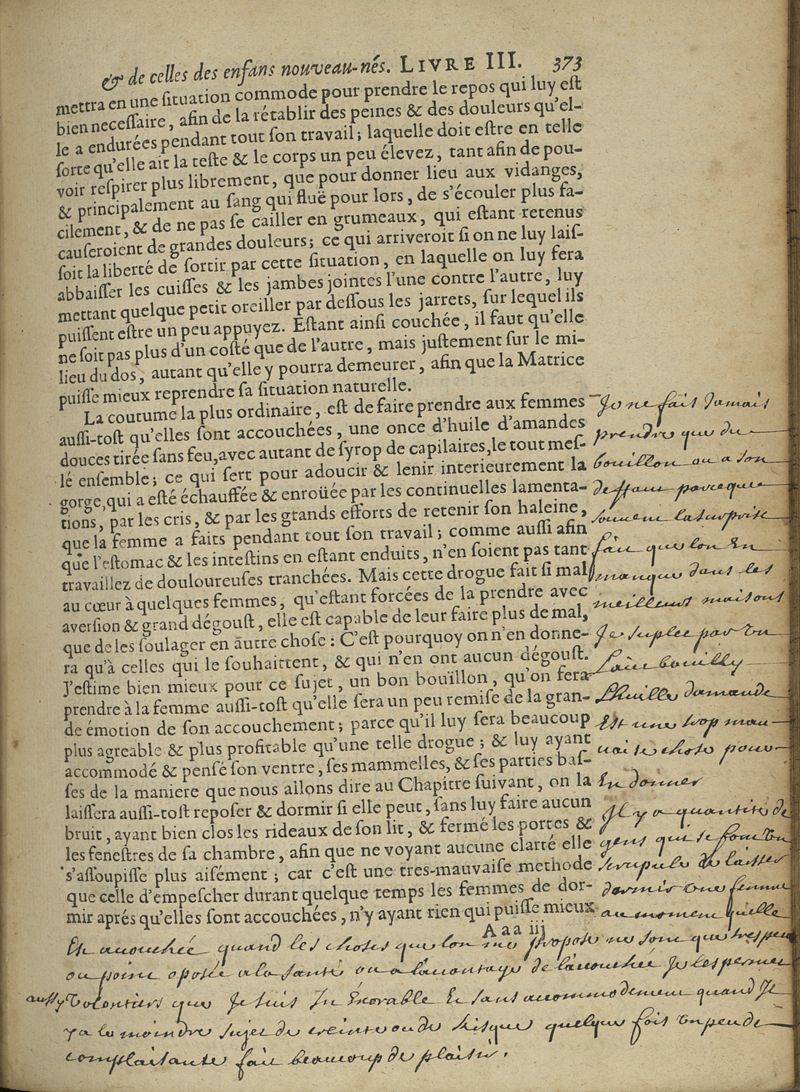 & de celles des enfans nouveau-nés. LIVRE III. 373
mettra en une ſituation commode pour prendre le repos qui luy eſt
bien neceſſaire, afin de la rétablir des peines & des douleurs qu'el-
le a endurées pendant tout ſon travail; laquelle doit eſtre en telle
ſorte qu'elle ait la teſte & le corps un peu élevez, tant afin de pou-
voir reſpirer plus librement, que pour donner lieu aux vidanges,
& principalement au ſang qui fluë pour lors, de s'écouler plus fa-
cilement, & de ne pas ſe cailler en grumeaux, qui eſtant retenus
cauſeroient de grandes douleurs; ce qui arriveroit ſi on ne luy laiſ-
ſoit la liberté de ſortir par cette ſituation, en laquelle on luy fera
abbaiſſer les cuiſſes & les jambes jointes l'une contre l'autre, luy
mettant quelque petit oreiller par deſſous les jarrets, ſur lequel ils
puiſſent eſtre un peu appuyez. Eſtant ainſi couchée, il faut qu'elle
ne ſoit pas plus d'un coſté que de l'autre, mais juſtement ſur le mi-
lieu du dos, autant qu'elle y pourra demeurer, afin que la Matrice
puiſſe mieux reprendre ſa ſituation naturelle.
La coutume la plus ordinaire, eſt de faire prendre aux femmes
auſſi-toſt qu'elles ſont accouchées, une once d'huile d'amandes
douces tirée ſans feu, avec autant de ſyrop de capilaires, le tout meſ-
lé enſemble; ce qui ſert pour adoucir & lenir interieurement la
gorge, qui a eſté échauffée & enroüée par les continuelles lamenta-
tions, par les cris, & par les grands efforts de retenir ſon haleine,
que la femme a faits pendant tout ſon travail; comme auſſi afin
que l'eſtomac & les inteſtins en eſtant enduits, n'en ſoient pas tant
travaillez de douloureuſes tranchées. Mais cette drogue fait ſi mal
au cœur à quelques femmes, qu'eſtant forcées de la prendre avec
averſion & grand dégouſt, elle eſt capable de leur faire plus de mal,
que de les ſoulager en autre choſe: C'eſt pourquoy on n'en donne-
ra qu'à celles qui le ſouhaittent, & qui n'en ont aucun dégouſt.
J'eſtime bien mieux pour ce ſujet, un bon boüillon, qu'on fera
prendre à la femme auſſi-toſt qu'elle ſera un peu remiſe de la gran-
de émotion de ſon accouchement; parce qu'il luy ſera beaucoup
plus agreable & plus profitable qu'une telle drogue; & luy ayant
accommodé & penſé ſon ventre, ſes mammelles, & ſes parties baſ-
ſes de la maniere que nous allons dire au Chapitre ſuivant, on la
laiſſera auſſi-toſt repoſer & dormir ſi elle peut, ſans luy faire aucun
bruit, ayant bien clos les rideaux de ſon lit, & fermé les portes &
les feneſtres de ſa chambre, afin que ne voyant aucune clarté elle
s'aſſoupiſſe plus aiſément; car c'eſt une tres-mauvaiſe methode
que celle d'empeſcher durant quelque temps les femmes de dor-
mir aprés qu'elles ſont accouchées, n'y ayant rien qui puiſſe mieux
Aaa iij
Je ne fais Jamais
prendre que du
bouillon ou a son
deffaut parce que
souvent la surprise
fait que lon en
manque dans les
meilleures maisons
Je suplee par un
lait bouilly
lhuille damande
Est une trop mau
uaise chose pour
En donner
Il y a quantite de
gens qui se font un
scrupule de laisser
dormir une femme
au moment quelle
Est accouchée quand les choses que lon me propose ne sont que tres peu
ou point oposée a la santé ou a lauantage de lacouchée Je les permet
aussy volontiers que Je suis Inexorable Et sans accommodement quand Je
ya le moindre sujet de creinte ou de risque quelque fois un peu de
complaisance fait beaucoup de plaisir.